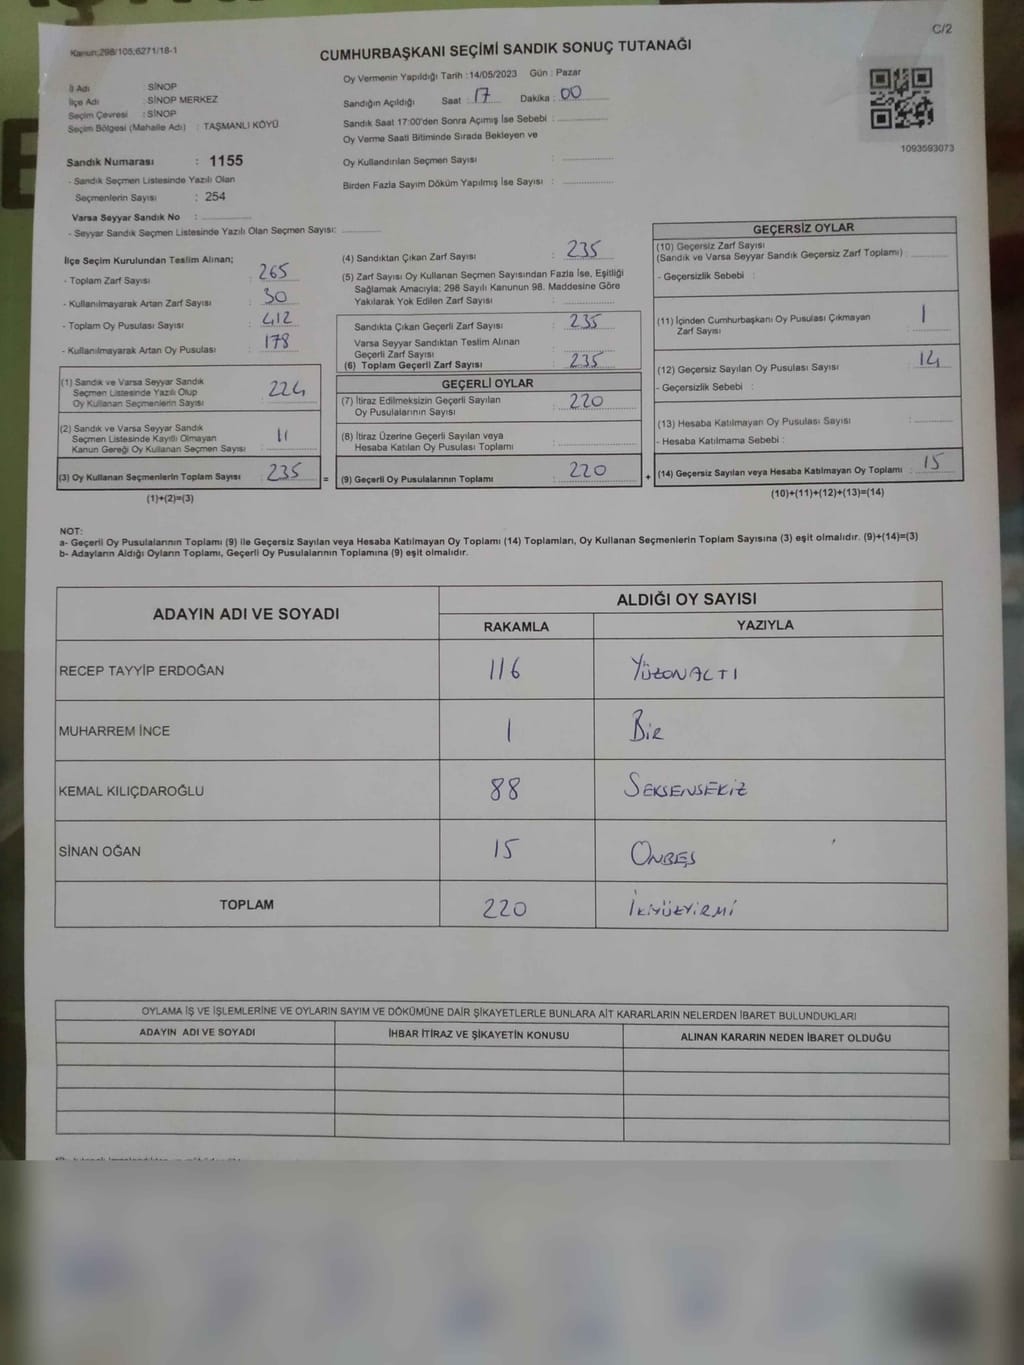 C/2
Kanun:298/105;6271/18-1
CUMHURBAŞKANI SEÇİMİ SANDIK SONUÇ TUTANAĞI
İl Adı : SİNOP
İlçe Adı : SİNOP MERKEZ
Seçim Çevresi : SİNOP
Seçim Bölgesi (Mahalle Adı) : TAŞMANLI KÖYÜ
Oy Vermenin Yapıldığı Tarih : 14/05/2023 Gün : Pazar
Sandığın Açıldığı Saat : 17 Dakika : 00
Sandık Saat 17:00'den Sonra Açımış İse Sebebi :
Oy Verme Saati Bitiminde Sırada Bekleyen ve
Oy Kullandırılan Seçmen Sayısı :
Birden Fazla Sayım Döküm Yapılmış İse Sayısı :
1093593073
Sandık Numarası : 1155
- Sandık Seçmen Listesinde Yazılı Olan
Seçmenlerin Sayısı : 254
Varsa Seyyar Sandık No :
- Seyyar Sandık Seçmen Listesinde Yazılı Olan Seçmen Sayısı:
İlçe Seçim Kurulundan Teslim Alınan;
- Toplam Zarf Sayısı : 265
- Kullanılmayarak Artan Zarf Sayısı : 30
- Toplam Oy Pusulası Sayısı : 412
- Kullanılmayarak Artan Oy Pusulası : 178
(1) Sandık ve Varsa Seyyar Sandık
Seçmen Listesinde Yazılı Olup
Oy Kullanan Seçmenlerin Sayısı : 224
(2) Sandık ve Varsa Seyyar Sandık
Seçmen Listesinde Kayıtlı Olmayan
Kanun Gereği Oy Kullanan Seçmen Sayısı : 11
(3) Oy Kullanan Seçmenlerin Toplam Sayısı : 235 =
(1)+(2)=(3)
(4) Sandıktan Çıkan Zarf Sayısı : 235
(5) Zarf Sayısı Oy Kullanan Seçmen Sayısından Fazla İse, Eşitliği
Sağlamak Amacıyla; 298 Sayılı Kanunun 98. Maddesine Göre
Yakılarak Yok Edilen Zarf Sayısı :
Sandıkta Çıkan Geçerli Zarf Sayısı : 235
Varsa Seyyar Sandıktan Teslim Alınan
Geçerli Zarf Sayısı :
(6) Toplam Geçerli Zarf Sayısı : 235
GEÇERLİ OYLAR
(7) İtiraz Edilmeksizin Geçerli Sayılan
Oy Pusulalarının Sayısı : 220
(8) İtiraz Üzerine Geçerli Sayılan veya
Hesaba Katılan Oy Pusulası Toplamı :
(9) Geçerli Oy Pusulalarının Toplamı : 220 +
GEÇERSİZ OYLAR
(10) Geçersiz Zarf Sayısı
(Sandık ve Varsa Seyyar Sandık Geçersiz Zarf Toplamı) :
- Geçersizlik Sebebi :
(11) İçinden Cumhurbaşkanı Oy Pusulası Çıkmayan
Zarf Sayısı : 1
(12) Geçersiz Sayılan Oy Pusulası Sayısı : 14
- Geçersizlik Sebebi :
(13) Hesaba Katılmayan Oy Pusulası Sayısı :
- Hesaba Katılmama Sebebi :
(14) Geçersiz Sayılan veya Hesaba Katılmayan Oy Toplamı : 15
(10)+(11)+(12)+(13)=(14)
NOT:
a- Geçerli Oy Pusulalarının Toplamı (9) ile Geçersiz Sayılan veya Hesaba Katılmayan Oy Toplamı (14) Toplamları, Oy Kullanan Seçmenlerin Toplam Sayısına (3) eşit olmalıdır. (9)+(14)=(3)
b- Adayların Aldığı Oyların Toplamı, Geçerli Oy Pusulalarının Toplamına (9) eşit olmalıdır.
ADAYIN ADI VE SOYADI ALDIĞI OY SAYISI
RAKAMLA YAZIYLA
RECEP TAYYİP ERDOĞAN 116 YÜZONALTI
MUHARREM İNCE 1 Bir
KEMAL KILIÇDAROĞLU 88 SEKSENSEKİZ
SİNAN OĞAN 15 ONBEŞ
TOPLAM 220 İKİYÜZYİRMİ
OYLAMA İŞ VE İŞLEMLERİNE VE OYLARIN SAYIM VE DÖKÜMÜNE DAİR ŞİKAYETLERLE BUNLARA AİT KARARLARIN NELERDEN İBARET BULUNDUKLARI
ADAYIN ADI VE SOYADI İHBAR İTİRAZ VE ŞİKAYETİN KONUSU ALINAN KARARIN NEDEN İBARET OLDUĞU